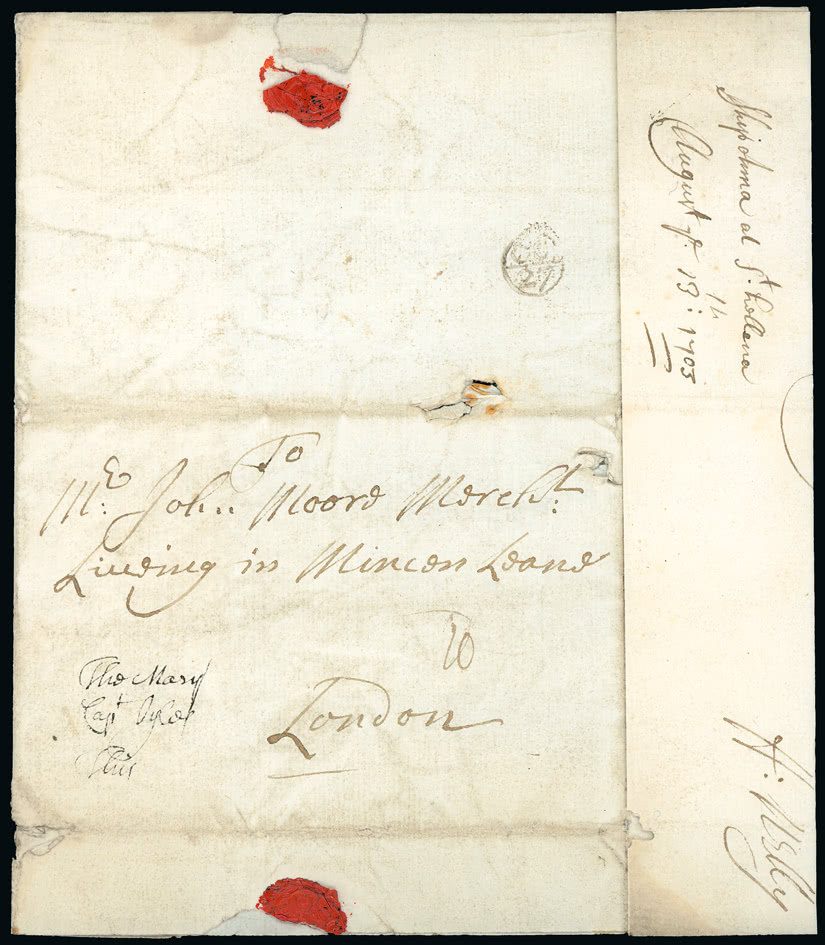 To
Mr. John Moore Mercht.
Liveing in Mincen Leane
London
The Mary
Capt
27
Ship at St. Hellena
August ye. 13th: 1703